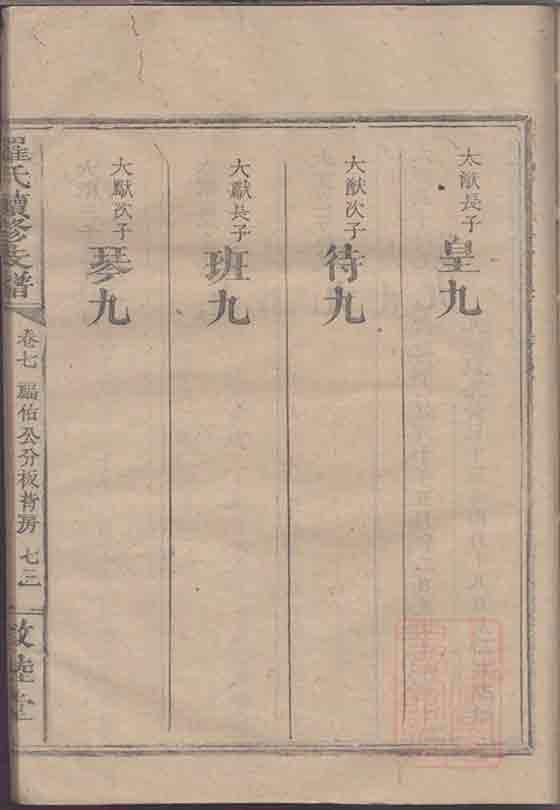 大猷長子
皇九
大猷次子
待九
大獻長子
班九
大獻次子
琴九
羅氏續修支譜
卷七
福佑公分板背房
七三
敦睦堂